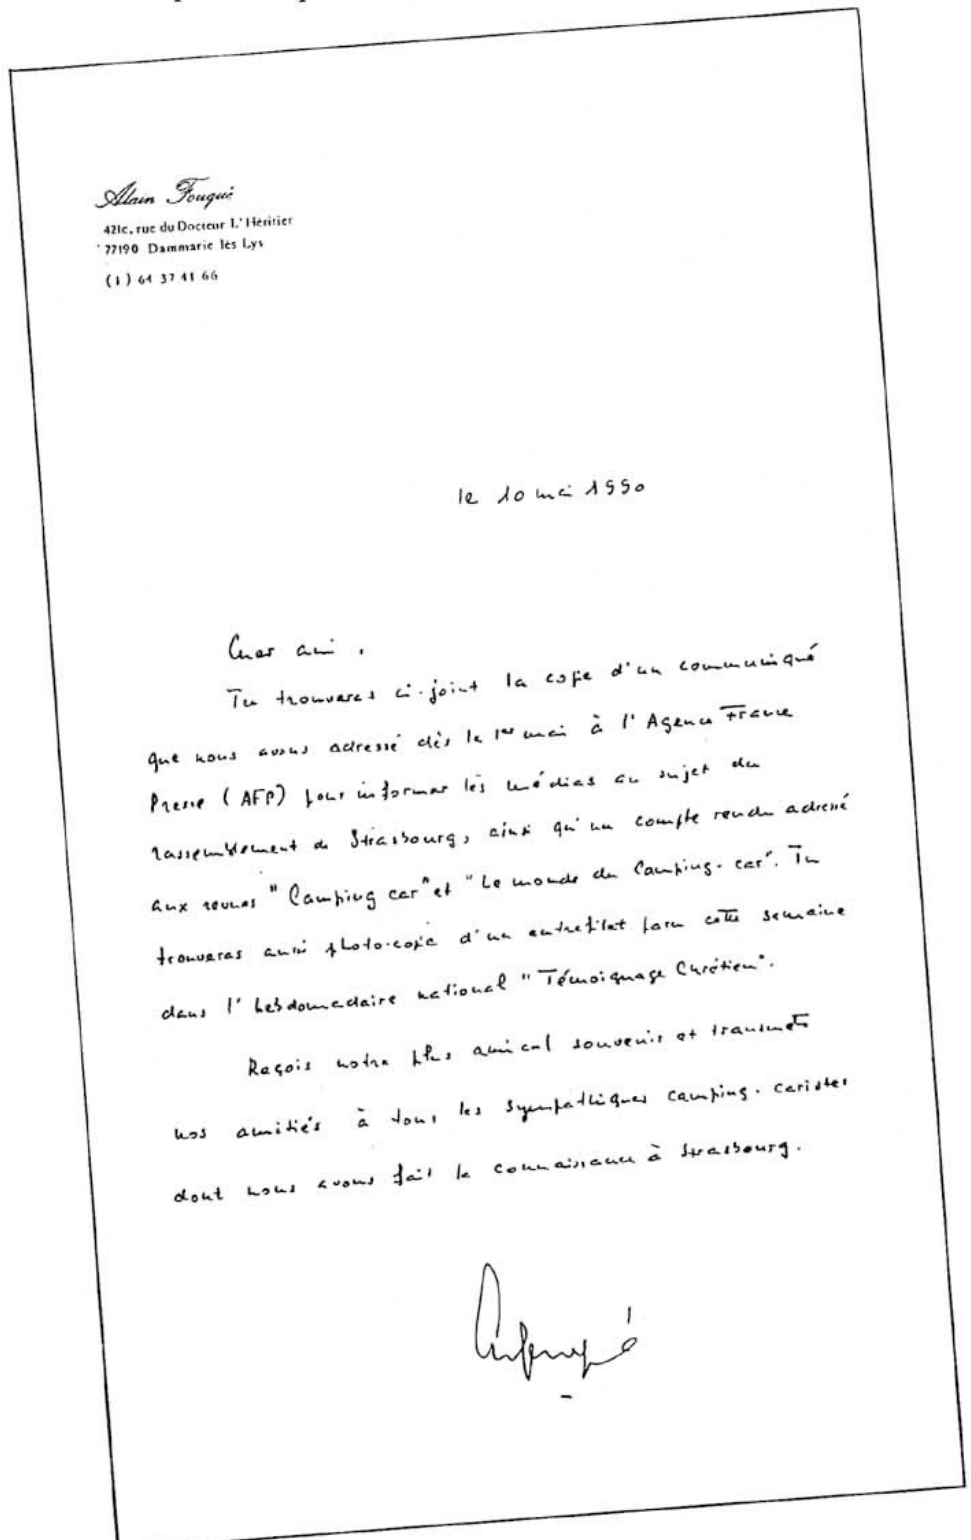 Alain Fouqué
421c, rue du Docteur L'Héritier
77190 Dammarie lès Lys
(1) 64 37 41 66
le 10 mai 1990
Cher ami,
Tu trouveras ci-joint la copie d'un communiqué
que nous avons adressé dès le 1er mai à l'Agence France
Presse (AFP) pour informer les médias au sujet du
rassemblement de Strasbourg, ainsi qu'un compte rendu adressé
aux revues "Camping car" et "Le monde du Camping-car". Tu
trouveras aussi photo-copie d'un entrefilet paru cette semaine
dans l'hebdomadaire national "Témoignage Chrétien".
Reçois notre plus amical souvenir et transmets
nos amitiés à tous les sympathiques camping-caristes
dont nous avons fait la connaissance à Strasbourg.